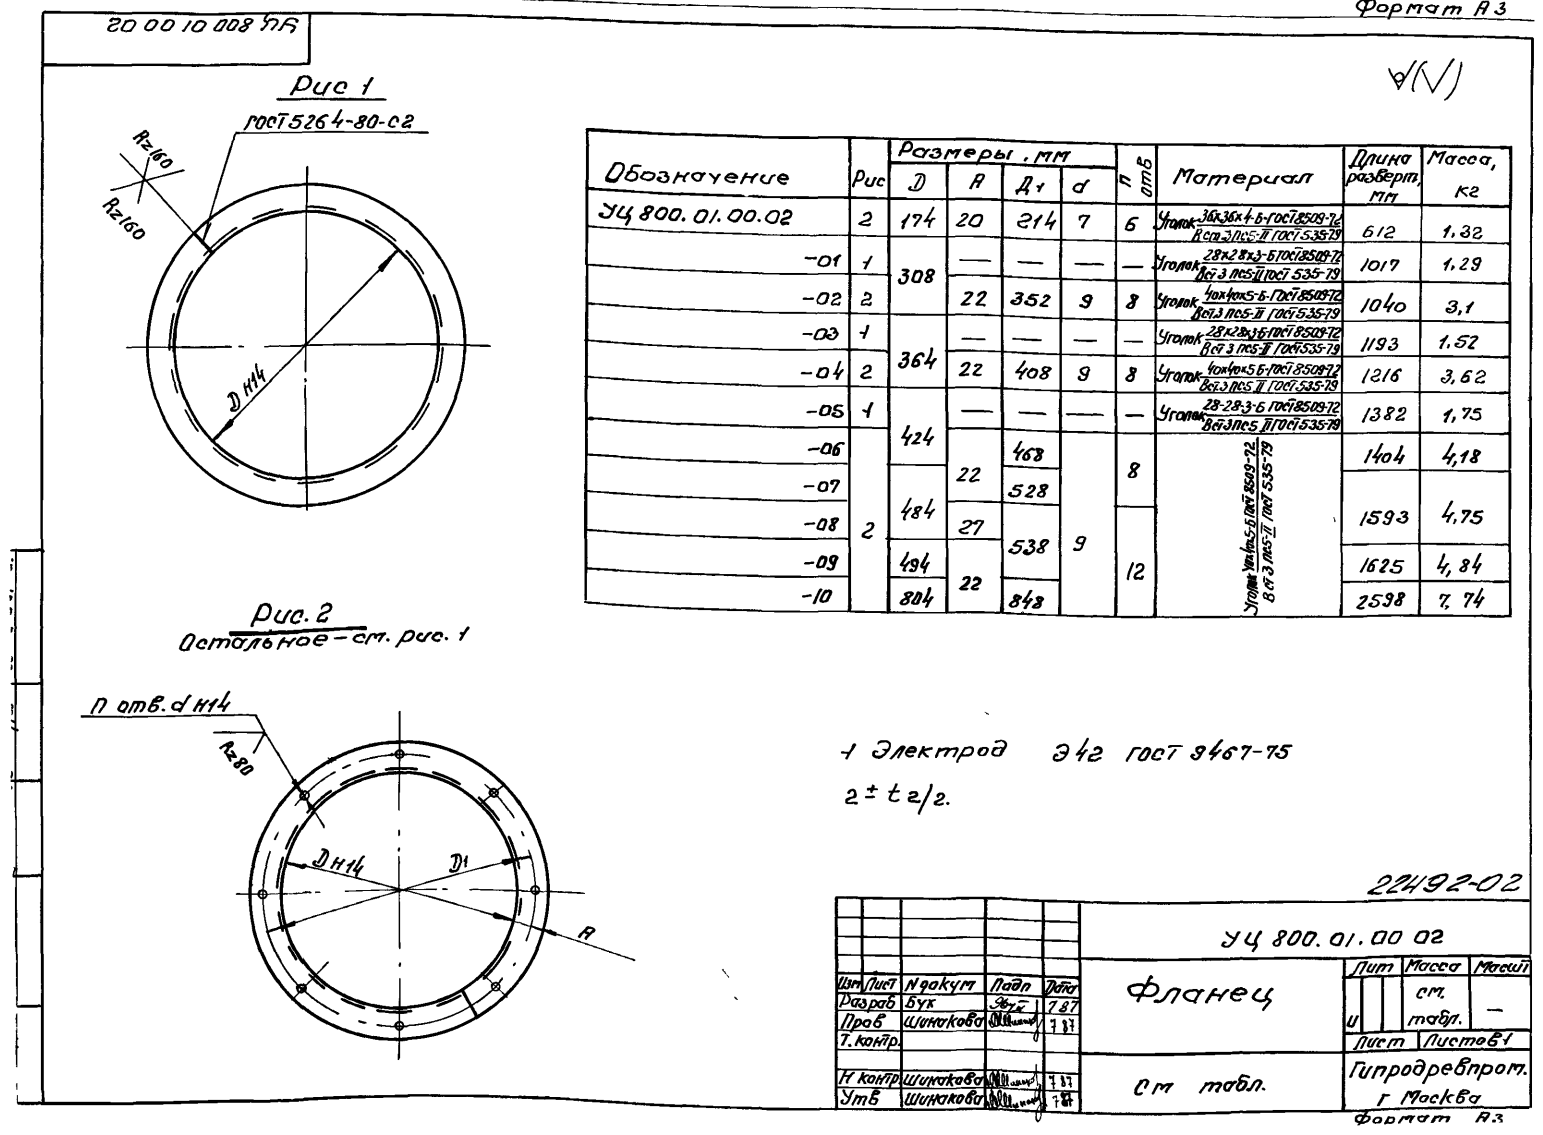 Формат А3
УЦ 800 01 00 02
Рис 1
ГОСТ 5264-80-С2
Rz160
Rz160
D н14
Обозначение Рис Размеры, мм п отв Материал Длина разверт, мм Масса, кг
D A Д1 d
УЦ 800.01.00.02 2 174 20 214 7 6 Уголок 36х36х4-Б-ГОСТ 8509-72 / ВСт3пс5-II ГОСТ 535-79 612 1.32
-01 1 308 — — — — Уголок 28х28х3-Б ГОСТ 8509-72 / ВСт3пс5-II ГОСТ 535-79 1017 1.29
-02 2 22 352 9 8 Уголок 40х40х5-Б-ГОСТ 8509-72 / ВСт3пс5-II ГОСТ 535-79 1040 3,1
-03 1 364 — — — — Уголок 28х28х3-Б ГОСТ 8509-72 / ВСт3пс5-II ГОСТ 535-79 1193 1.52
-04 2 22 408 9 8 Уголок 40х40х5 Б-ГОСТ 8509-72 / ВСт3пс5 II ГОСТ 535-79 1216 3,62
-05 1 424 — — — — Уголок 28-28-3-Б ГОСТ 8509-72 / ВСт3пс5 II ГОСТ 535-79 1382 1,75
-06 2 22 468 9 8 Уголок 40х40х5-Б ГОСТ 8509-72 / ВСт3пс5-II ГОСТ 535-79 1404 4,18
-07 484 528 1593 4,75
-08 27 538 12
-09 494 22 1625 4,84
-10 804 848 2598 7,74
Рис. 2
Остальное - см. рис. 1
п отв. d н14
Rz80
D н14
D1
А
1 Электрод Э42 ГОСТ 9467-75
2 ± t2/2.
22492-02
УЦ 800.01.00 02
Изм Лист N докум Подп Дата
Разраб Бук 7 87
Пров Шинакова 7 87
Т. контр.
Н контр Шинакова 7 87
Утв Шинакова 7 87
Фланец
См табл.
Лит Масса Масшт
И см. табл. —
Лист Листов 1
Гипродревпром.
г Москва
Формат А3